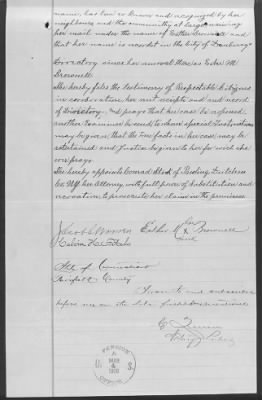 name, has been so known and recognized by her
neighbors and the community at large receiving
her mail under the name of Esther Brownell and
that her name is recorded in the City of Danbury
Directory since her removal there as Esther M
Brownell
She hereby files the testimony of Respectable Citizens
in corroboration, her rent receipts and
of Directory. and prays that her case be reopened
another Examiner be sent to whom special Instructions
may be given that the true facts in her case may be
ascertained and Justice be given to her for which she
ever prays.
She hereby appoints Conrad of Pawling Dutchess
Co NY her Attorney with full power of substitution and
revocation to prosecute her claim in the premises
Jacob Esther M her x mark Brownell
Calvin
State of Connecticut
Fairfield County
Sworn to and subscribed
before me on the
Notary Public
PENSION
MAR
6
1900
U S
OFFICE